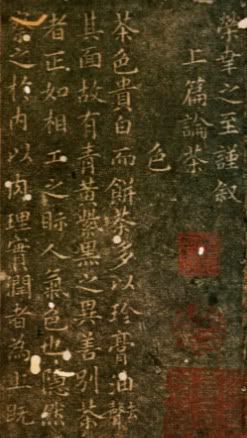 榮幸之至謹叙
上篇論茶
色
茶色貴白而餅茶多以珍膏油去聲
其面故有青黃紫黑之異善別茶
者正如相工之眎人氣色也隱然
察之於内以肉理實潤者為上既